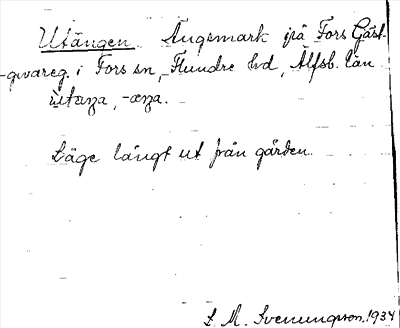 Utängen Ängsmark på Fors Gäst-
-givareg. i Fors sn, Flundre hd, Älfsb. län
ùtæŋa, -æŋa.
Läge långt ut från gården.
S. M. Svenungsson, 1934